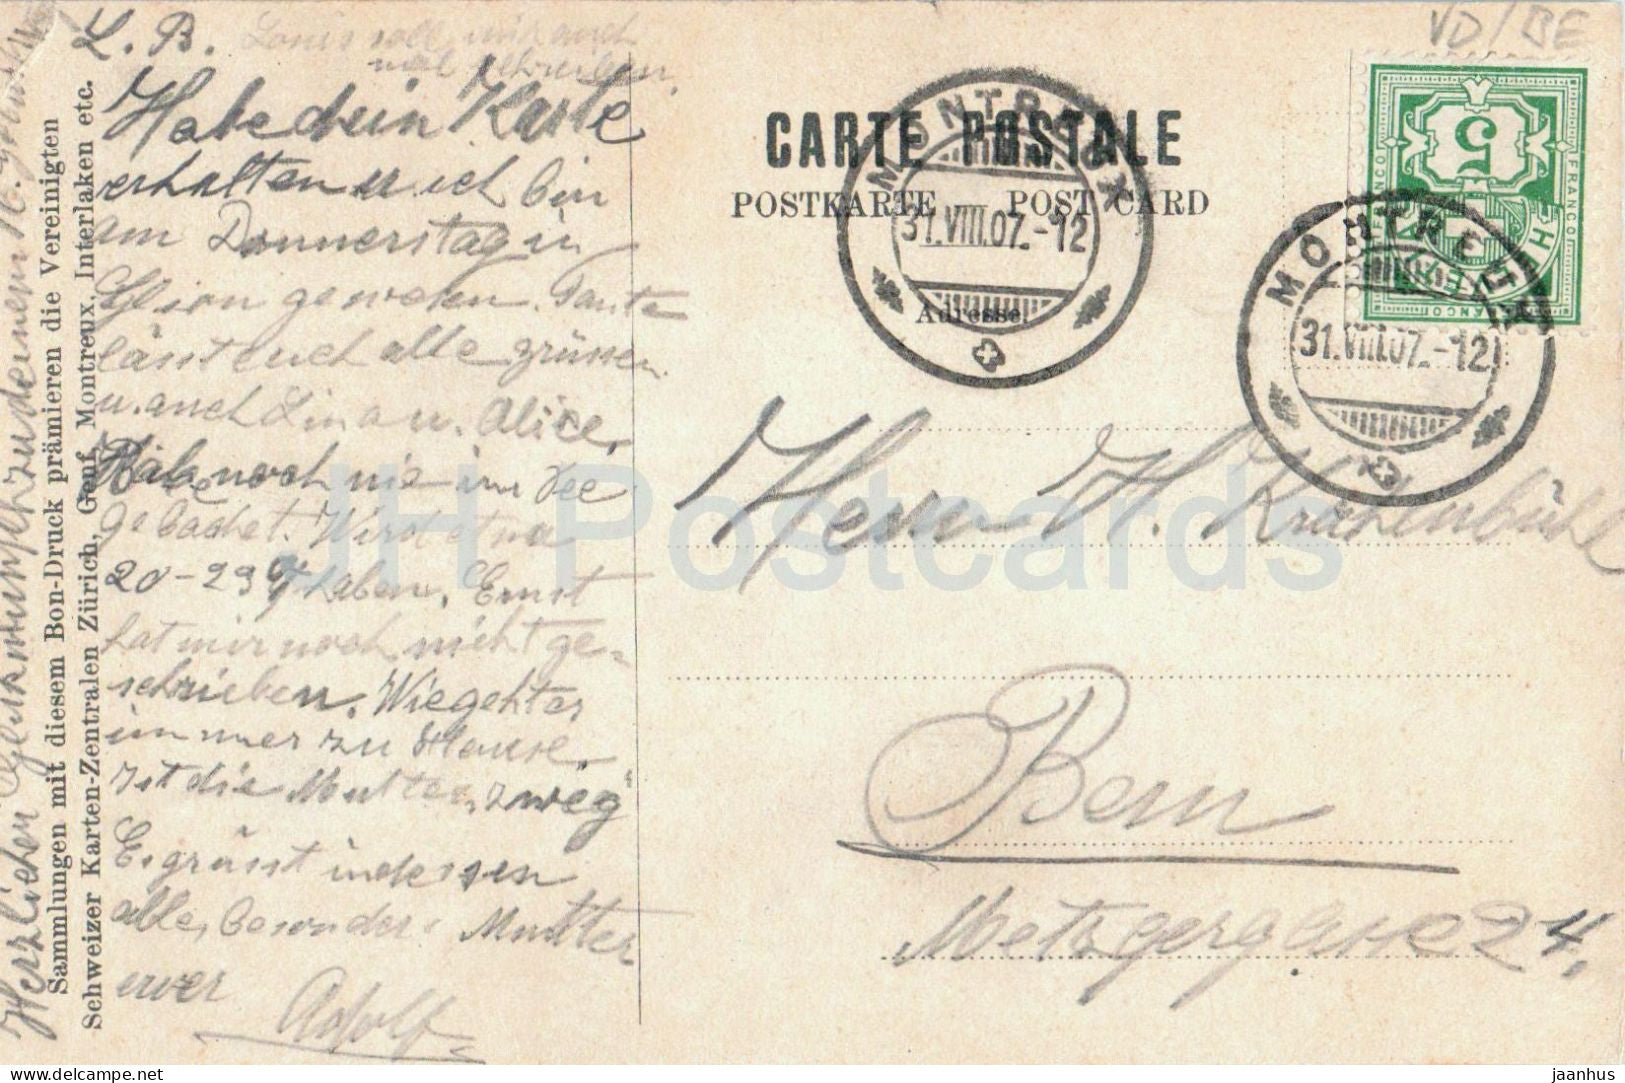 VD/BE
L. B. Louis soll mir auch
mal schreiben.
Habe dein Karte
erhalten u ich bin
am Donnerstag in
Glion gewesen. Tante
lässt euch alle grüssen
u. auch Lina u. Alice.
Habe noch nie im See
gebadet. Wird etwa
20-23 haben. Ernst
hat mir noch nicht ge-
schrieben. Wie geht es
immer zu Hause.
Ist die Mutter "zweg"
Es grüsst indessen
alle, besonders Mutter
euer
Adolf
Herzlichen Glückwunsch zu deinem 16.
Sammlungen mit diesem Bon-Druck prämieren die Vereinigten
Schweizer Karten-Zentralen Zürich, Genf, Montreux, Interlaken etc.
CARTE POSTALE
POSTKARTE POST CARD
Adresse
MONTREUX
31.VIII.07.-12
MONTREUX
31.VIII.07.-12
FRANCO
5
HELVETIA
FRANCO
Herrn H. Krähenbühl
Bern
Metzgergasse 24.
JH Postcards
delcampe.net
jaanhus